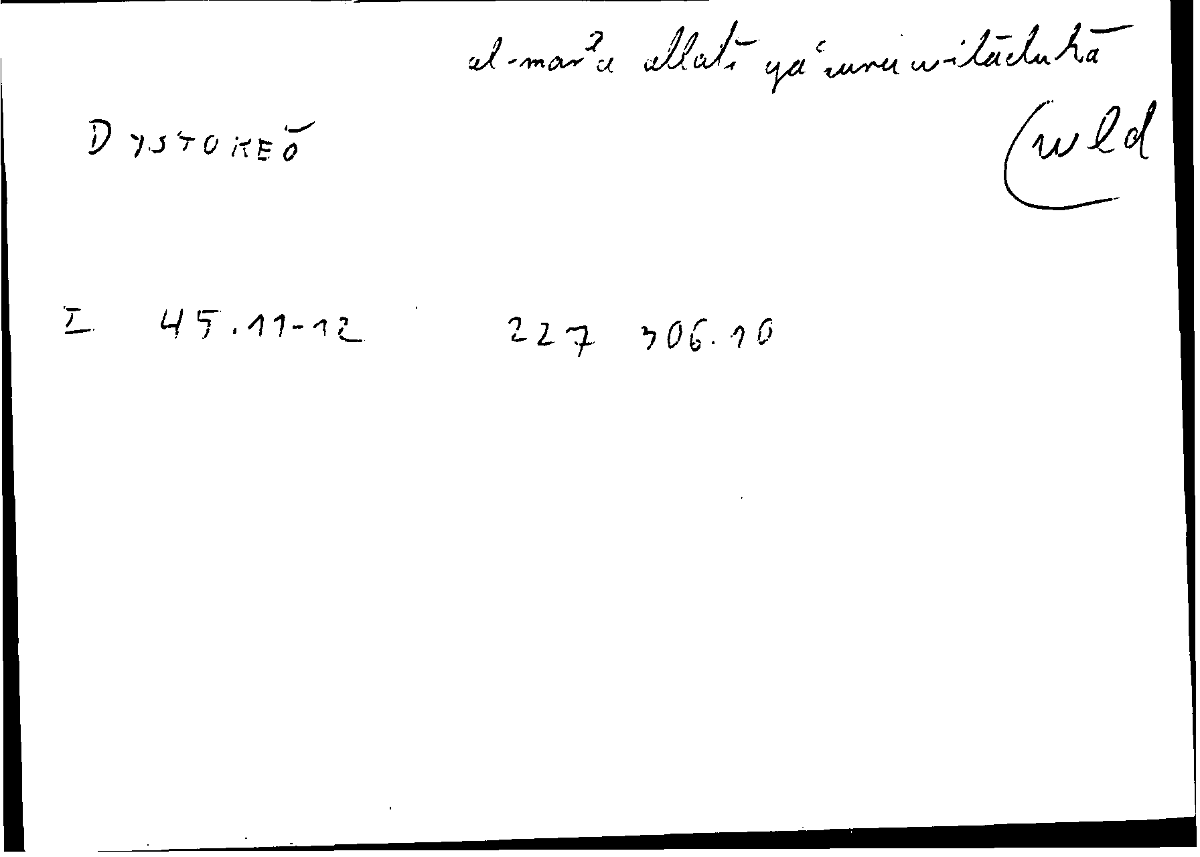 al-marʾa allatī yaʿsuru wilāduhā
DYSTOKEŌ
(wld
I 45.11-12 227 306.10